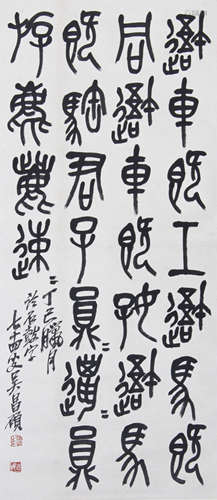 吾車既工吾馬既
同吾車既好吾馬
既駘君子員=邋=員
斿麀鹿速=
丁巳臘月
臨石鼓字
七十四叟吳昌碩